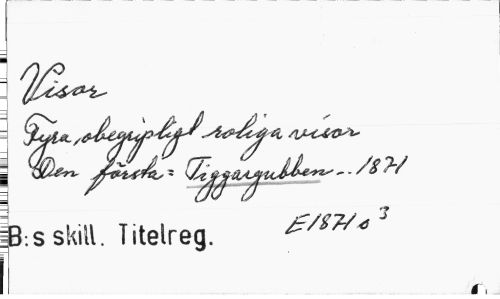 Visor
Fyra, obegripligt roliga visor
Den första: Tiggargubben... 1871
E1871 s 3
B:s skill. Titelreg.